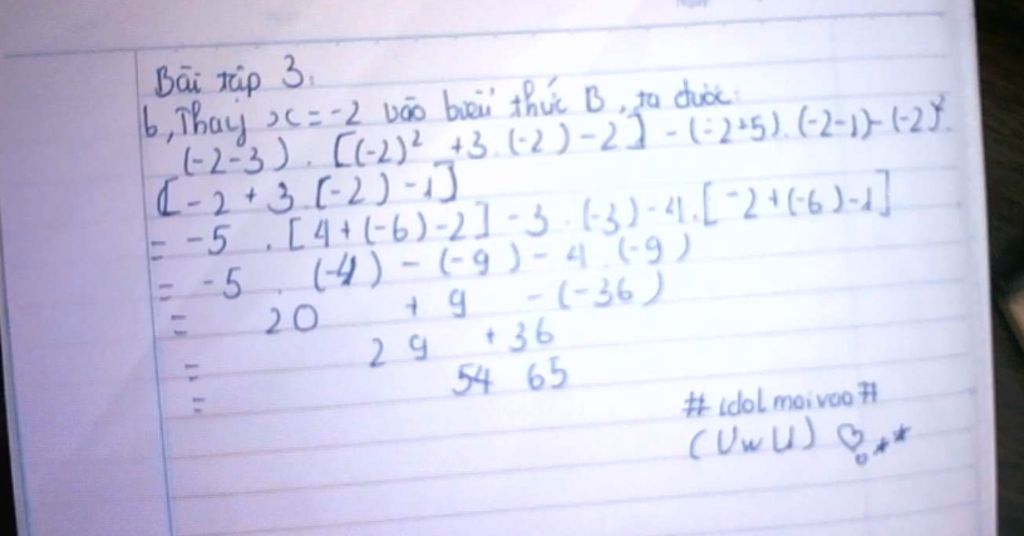 Bài tập 3:
b, Thay x = -2 vào biểu thức B, ta được:
(-2-3) . [(-2)² +3.(-2)-2] - (-2+5).(-2-1)-(-2)².
[-2+3.(-2)-1]
= -5 . [4+(-6)-2] - 3 . (-3) - 4.[-2+(-6)-1]
= -5 . (-4) - (-9) - 4 . (-9)
= 20 + 9 - (-36)
= 29 + 36
= 54 65
# idol moi vao #
(UwU)